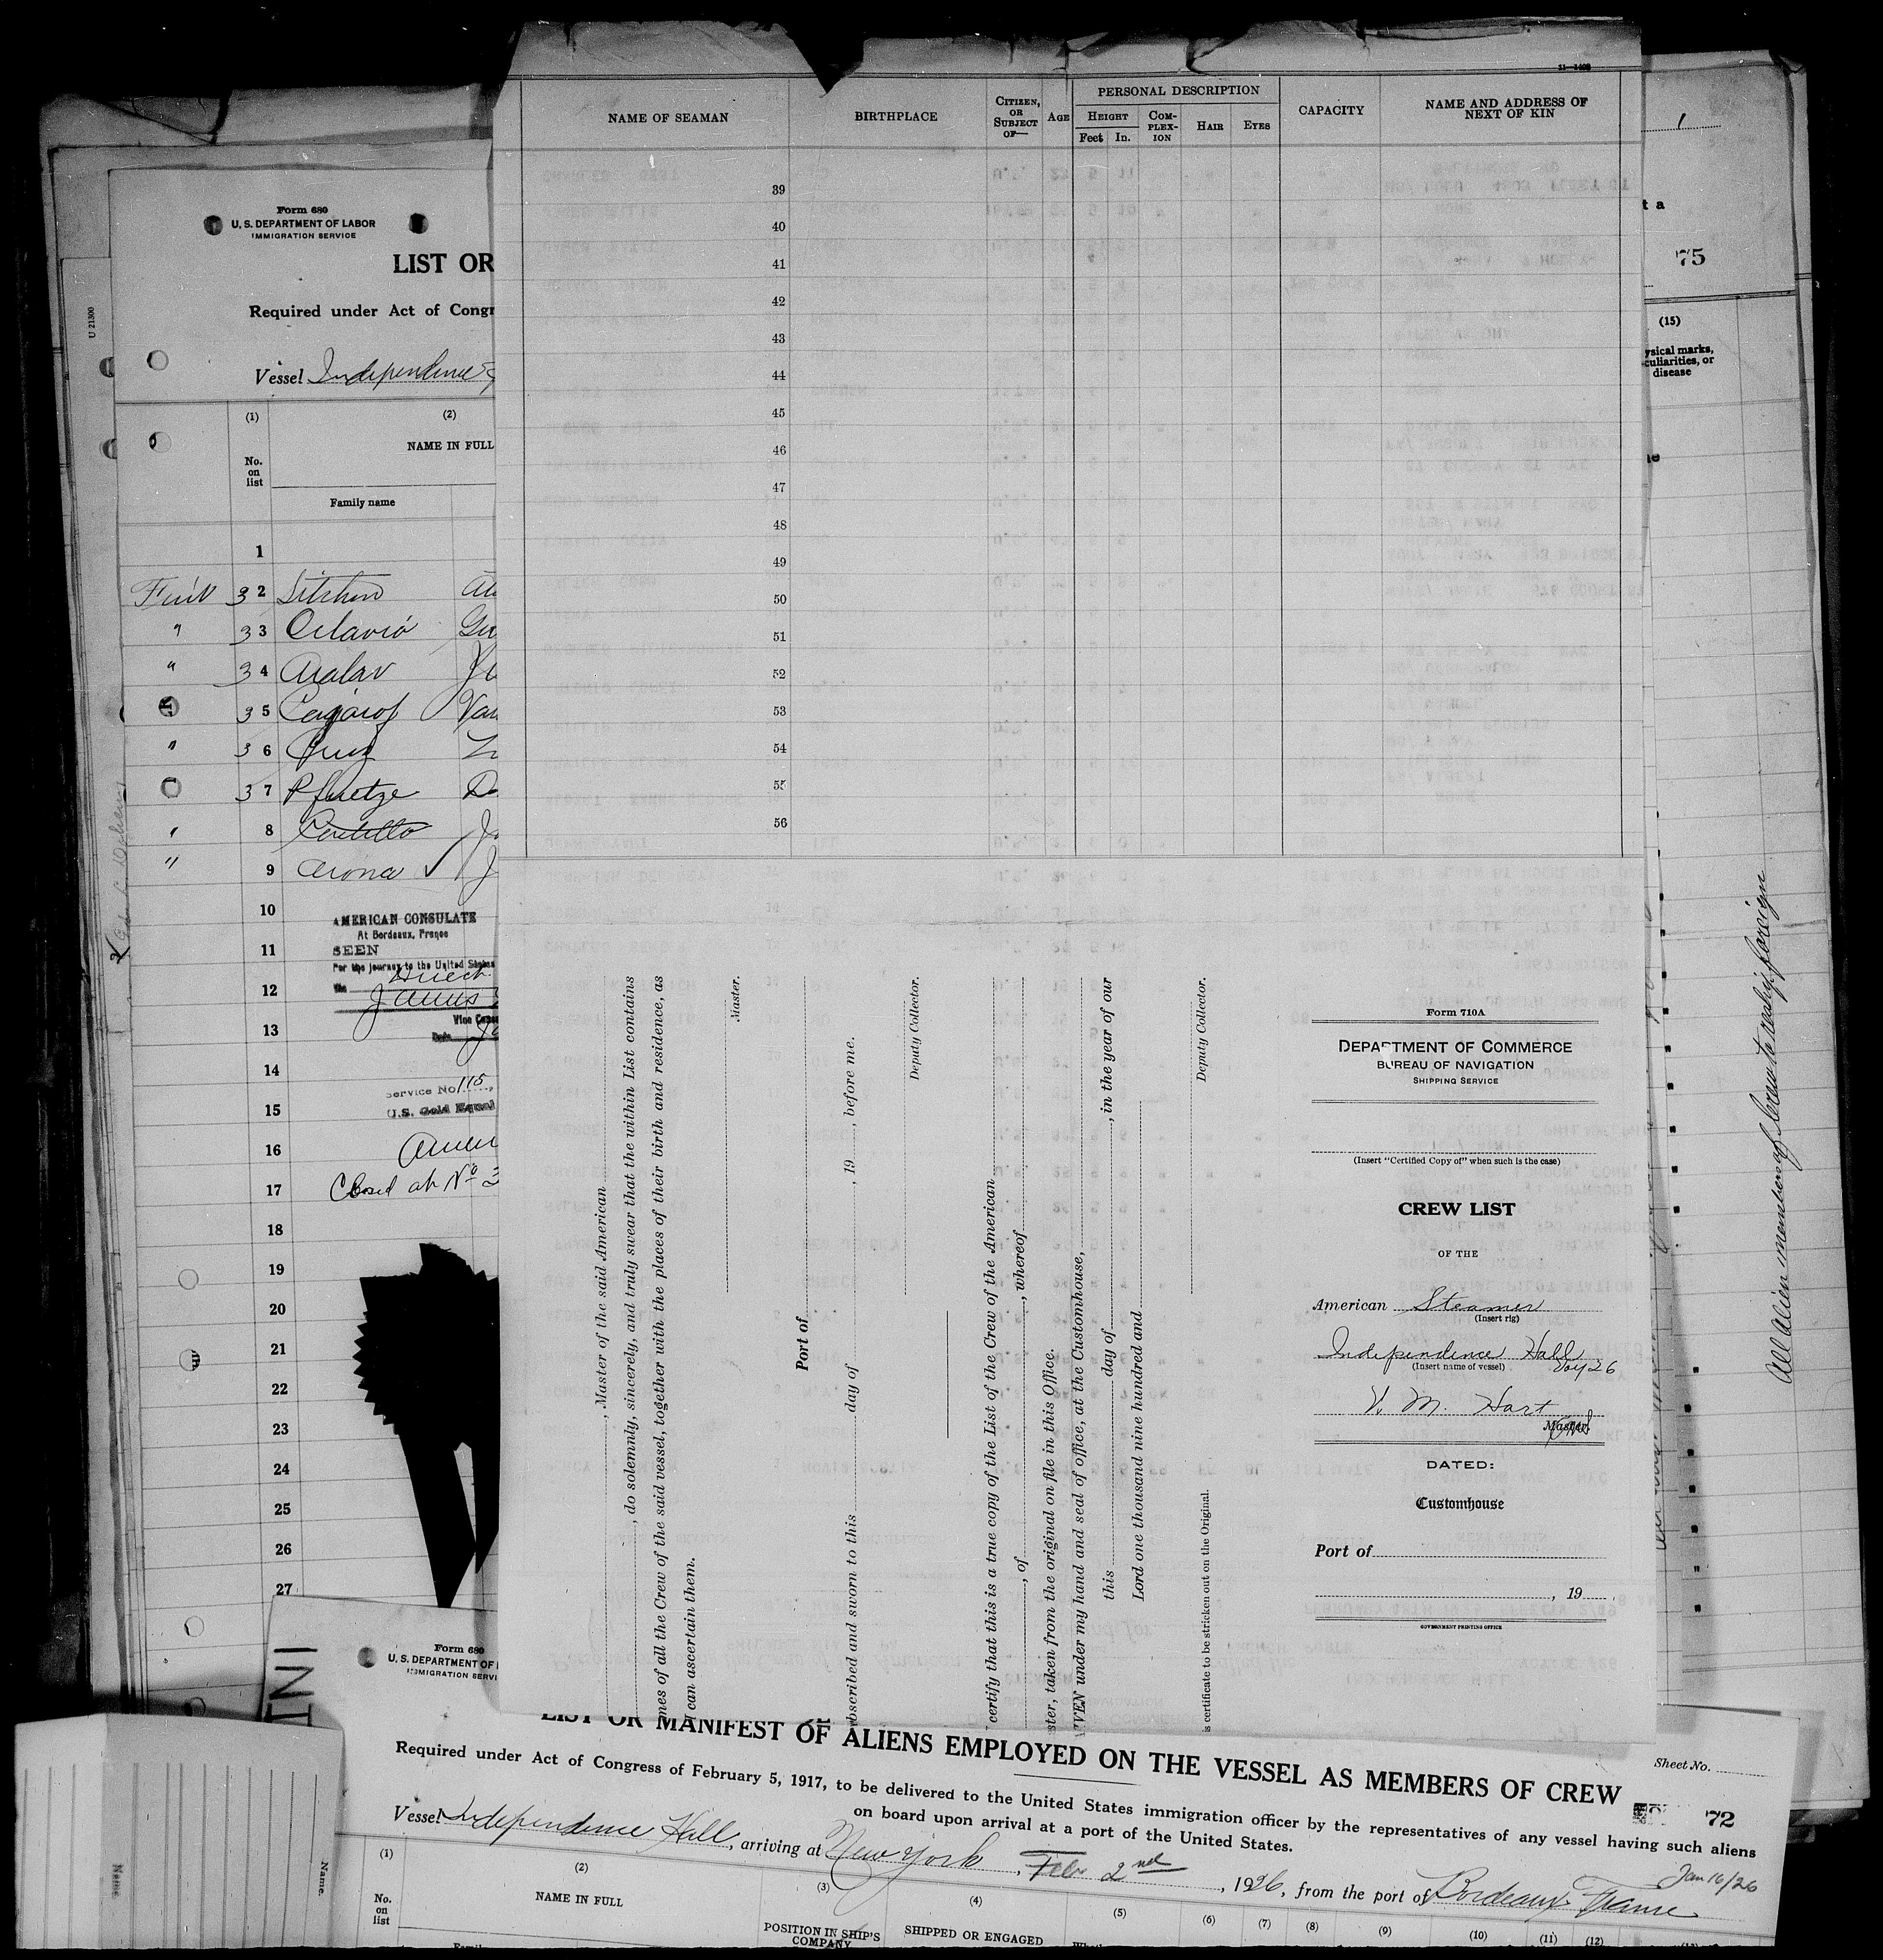 11—1490
NAME OF SEAMAN
BIRTHPLACE
CITIZEN, OR SUBJECT OF—
AGE
PERSONAL DESCRIPTION
HEIGHT
Feet In.
COM-PLEX-ION
HAIR
EYES
CAPACITY
NAME AND ADDRESS OF NEXT OF KIN
39
40
41
42
43
44
45
46
47
48
49
50
51
52
53
54
55
56
1
t a
75
(15)
ysical marks,
culiarities, or
disease
Form 680
U. S. DEPARTMENT OF LABOR
IMMIGRATION SERVICE
LIST OR
Required under Act of Congr
Vessel Independence
U 21300
(1)
(2)
NAME IN FULL
No.
on
list
Family name
1
32
" 33 Octavio
" 34
35
" 36 Cruz
37 Pfuetze
" 8
" 9 Arona
10
11
12
13
14
15
16
17
18
19
20
21
22
23
24
25
26
27
AMERICAN CONSULATE
At Bordeaux, France
SEEN
For the journey to the United States
Direct
James
Vice Consu
Date
Service No. 115
U.S. Gold Equal
Amer
Closed at No 3
, Master of the said American
, do solemnly, sincerely, and truly swear that the within List contains
mes of all the Crew of the said vessel, together with the places of their birth and residence, as
can ascertain them.
Master.
Port of
bscribed and sworn to this day of , 19 , before me.
Deputy Collector.
certify that this is a true copy of the List of the Crew of the American
, of , whereof
ster, taken from the original on file in this Office.
VEN under my hand and seal of office, at the Customhouse,
this day of , in the year of our
Lord one thousand nine hundred and
Deputy Collector.
is certificate to be stricken out on the Original.
Form 710A
DEPARTMENT OF COMMERCE
BUREAU OF NAVIGATION
SHIPPING SERVICE
(Insert "Certified Copy of" when such is the case)
CREW LIST
OF THE
American Steamer
(Insert rig)
Independence Hall
(Insert name of vessel) Voy 26
V. M. Hart
Master
DATED:
Customhouse
Port of
, 19
GOVERNMENT PRINTING OFFICE
All Alien members of crew to reship foreign
Form 680
U. S. DEPARTMENT OF
IMMIGRATION SERVI
LIST OR MANIFEST OF ALIENS EMPLOYED ON THE VESSEL AS MEMBERS OF CREW
Sheet No.
72
Required under Act of Congress of February 5, 1917, to be delivered to the United States immigration officer by the representatives of any vessel having such aliens
on board upon arrival at a port of the United States.
Vessel Independence Hall, arriving at New York, Feb 2nd, 1926, from the port of Bordeaux France
Jan 16/26
(1)
(2)
(3)
(4)
(5)
(6)
(7)
(8)
(9)
(10)
(11)
(12)
No.
on
list
NAME IN FULL
POSITION IN SHIP'S
COMPANY
SHIPPED OR ENGAGED
Name.
Name.